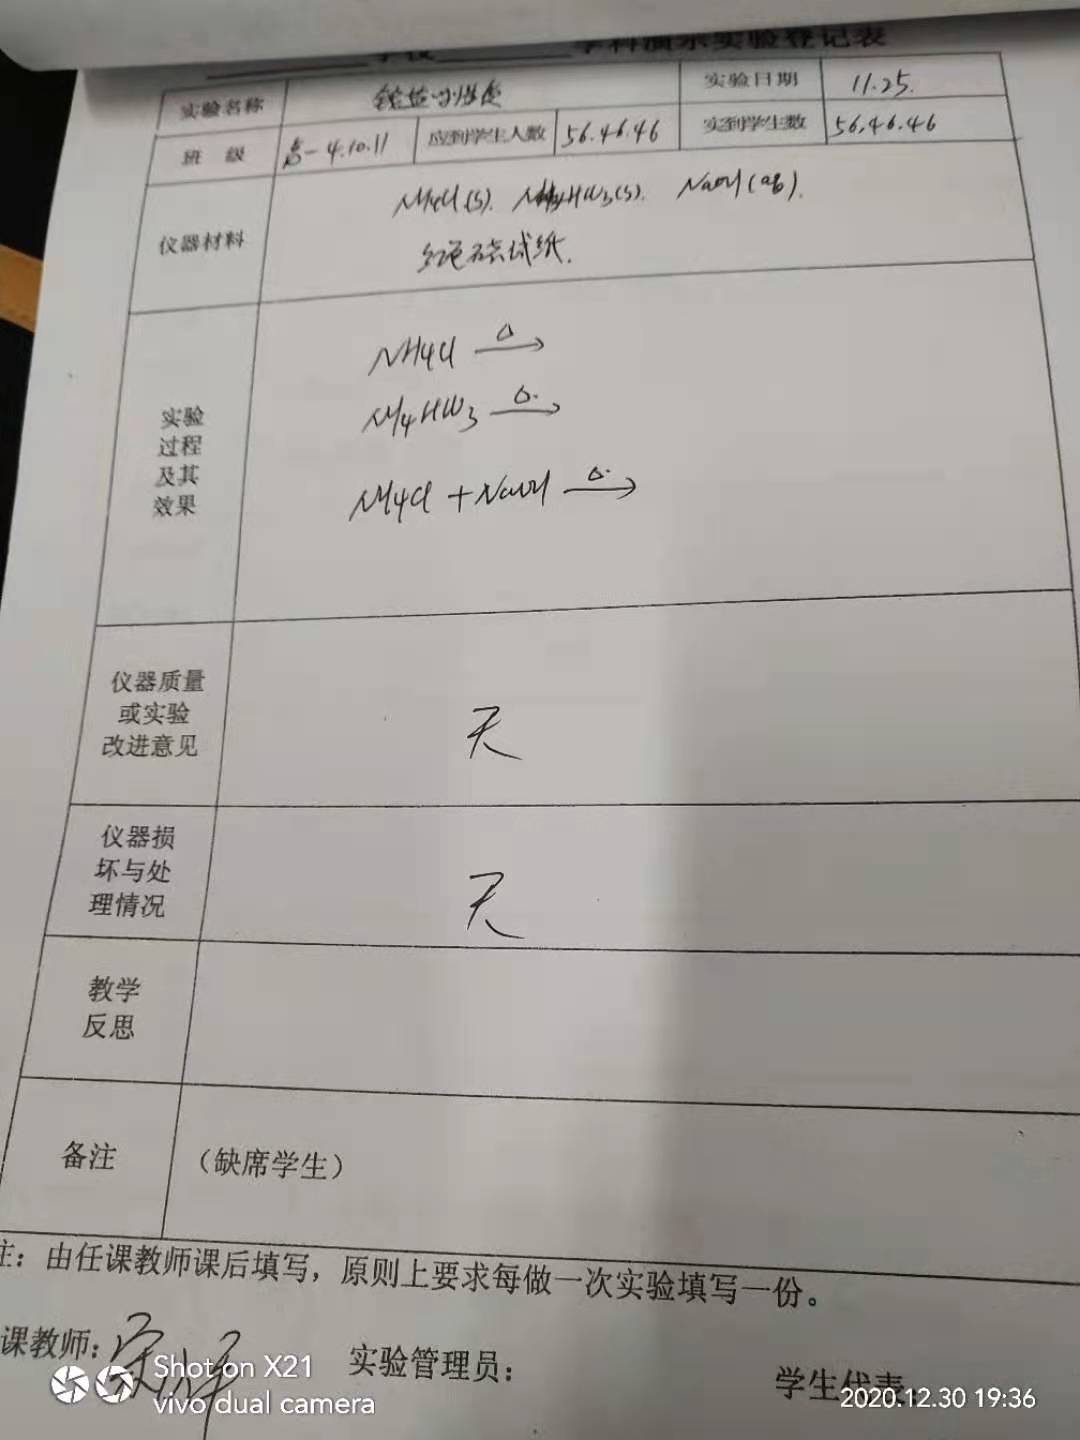 学科演示实验登记表
实验名称 铵盐的性质 实验日期 11.25.
班 级 高一 4.10.11 应到学生人数 56.46.46 实到学生数 56.46.46
仪器材料 NH4Cl(s). NH4HCO3(s). NaOH(aq).
红色石蕊试纸.
NH4Cl △→
NH4HCO3 △→
实验
过程
及其
效果
NH4Cl + NaOH △→
仪器质量
或实验
改进意见
无
仪器损
坏与处
理情况
无
教学
反思
备注 (缺席学生)
注：由任课教师课后填写，原则上要求每做一次实验填写一份。
课教师： 实验管理员： 学生代表
Shot on X21
vivo dual camera
2020.12.30 19:36